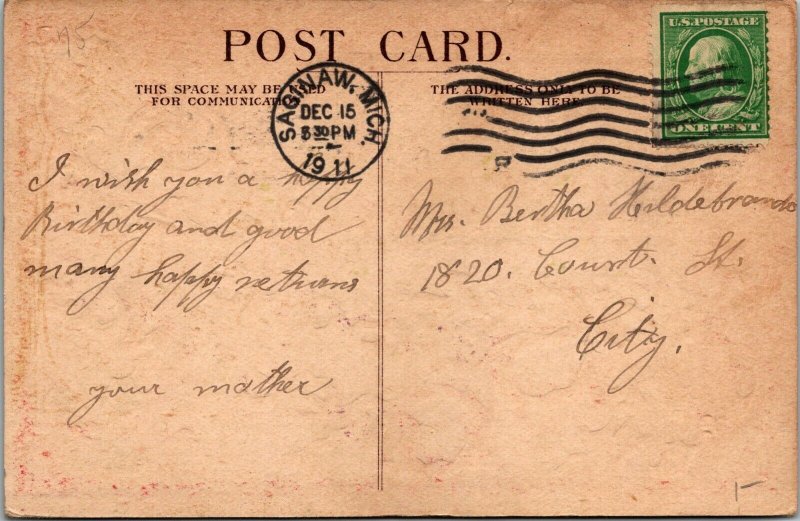 75
POST CARD.
THIS SPACE MAY BE USED
FOR COMMUNICATION
THE ADDRESS ONLY TO BE
WRITTEN HERE
SAGINAW, MICH.
DEC 15
3 30 PM
1911
U.S. POSTAGE
ONE CENT
I wish you a happy
Birthday and good
many happy returns
your mother
Mrs. Bertha Hildebrando
1820. Court. St.
City.
1-